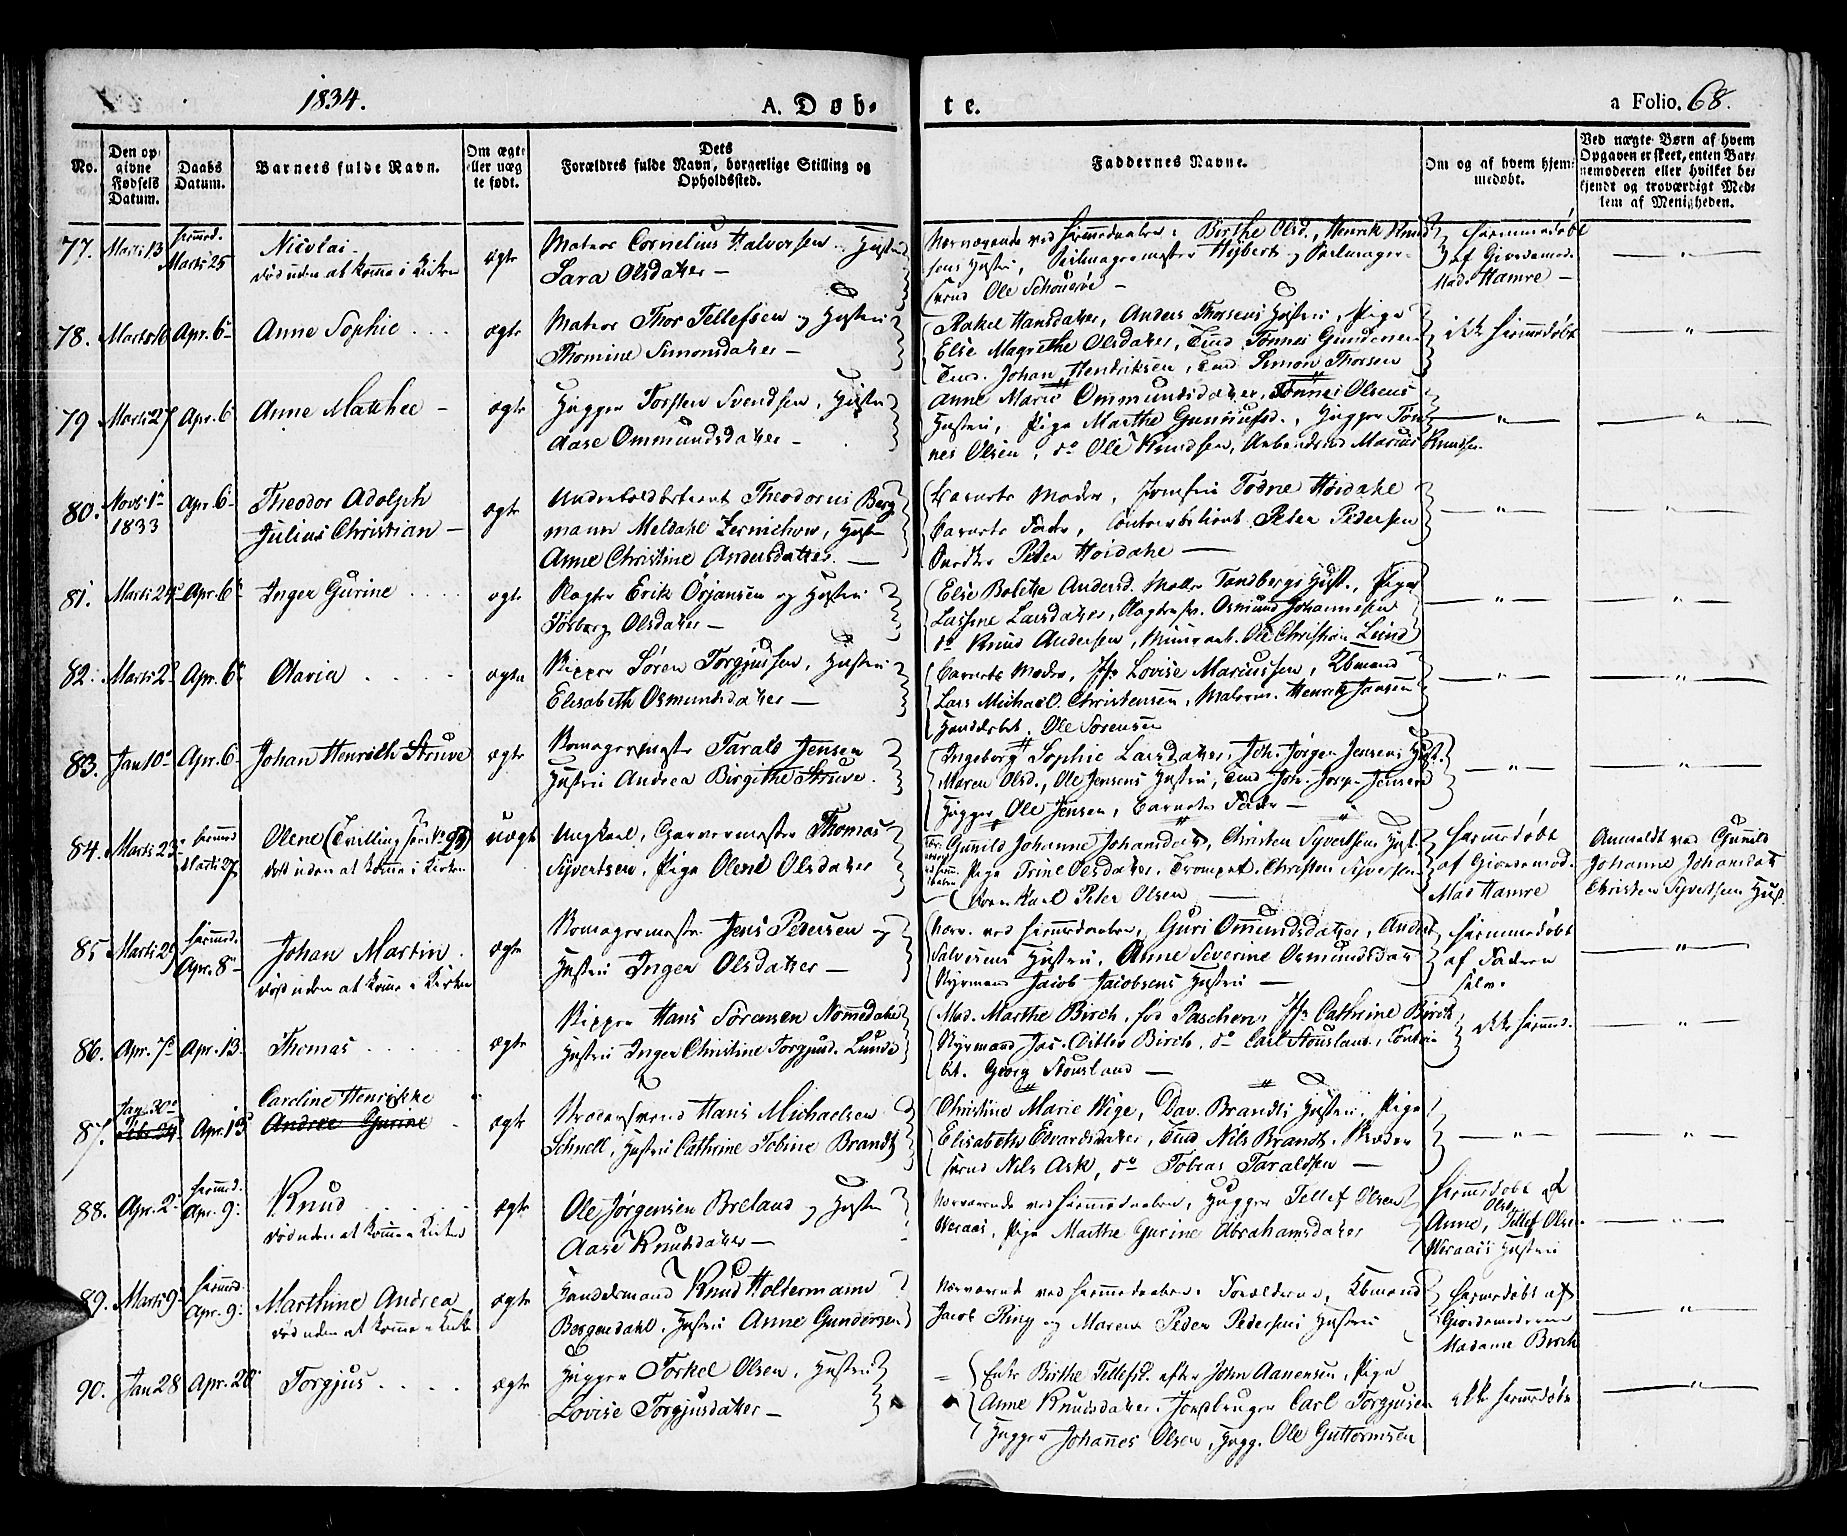 1834.
A. Døb-
te.
a Folio. 68.
No.
Den op-
givne
Fødsels
Datum.
Daabs
Datum.
Barnets fulde Navn.
Om ægte
eller uæg
te født.
Dets
Forældres fulde Navn, borgerlige Stilling og
Opholdssted.
Faddernes Navne.
Om og af hvem hjem-
medøbt.
Ved uægte Børn af hvem
Opgaven er skeet, enten Bar-
nemoderen eller hvilket be-
kjendt og troværdigt Med-
lem af Menigheden.
77. Marti 13 hjemmed. Marti 25 Nicolai
død uden at komme i Kirken
ægte
Matros Cornelius Halvorsen, Hustru
Sara Olsdatter –
Nærværende ved Hjemmedaaben: Birthe Olsd., Henrik Knud
sens Hustru, Seilmagermester Höjberg og Seilmager-
svend Ole
hjemmedöbt
af Giordemod.
Mad. Hamre –
78. Marti 16 Apr. 6 Anne Sophie
ægte
Matros Thor Tellefsen og Hustru
Thomine Simonsdatter –
Rakel Hansdatter, Anders Thorsens Hustru, Pige
Else Magrethe Olsdatter, Tönnes Gundersen
Johan Hendriksen, Simon Thorsen
ikke hjemmedöbt
79 Marti 27 Apr. 6 Anne Mathee –
ægte
Hugger Torsten Svendsen, Hustru
Aase Ommundsdatter –
Anne Marie Ommundsdatter, Tönnes Olsens
Hustru, Pige Marthe Gunnufsd., Hugger Tön
nes Olsen, do Ole Knudsen, Marcus Knudsen
80. Novb. 1 1833 Apr. 6 Theodor Adolph
Julius Christian –
ægte
Theodorus Berg
mann Meldahl Hustru
Anne Christine Andersdatter. –
Barnets Moder, Jomfru Todne Höidahl
Barnets Fader, Peter Pedersen
Peter Höidahl –
81. Marti 24 Apr. 6 Inger Gurine
ægte
Slagter Erik Örjansen og Hustru
Torborg Olsdatter –
Else Bolethe Andersd. Tandbergs Hust., Pige
Larsine Larsdatter, Osmund Johannesen
do Knud Andersen, Ole Christian Lund
82. Marti 2 Apr. 6 Olavia
ægte
Skipper Sören Torgjussen, Hustru
Elisabeth Osmundsdatter –
Barnets Moder, Jfr. Lovise Marcussen, Kbmand
Lars Michael Christensen, Malerm. Henrik Jansen
Ole Sörensen
83. Jan. 10 Apr. 6 Johan Henrich Struve
ægte
Skomagermester Tarald Jensen
Hustru Andrea Birgithe Struve.
Ingeborg Sophie Larsdatter, Joh. Jørgen Jensens Hust.
Maren Olsd., Ole Jensens Hustru, Joh. Jørg. Jensen
Hugger Ole Jensen, Barnets Fader –
84. Marti 23 hjemmed Marti 27 Olene (Tvilling
död uden at komme i Kirken
uægte
Ungkarl, Garvermester Thomas
Syvertsen, Pige Olene Olsdatter
Gunild Johanne Johansdat, Christen Syvertsens Hust.
Pige Trine Olsdatter, Christen Syversen
Karl Peter Olsen –
hjemmedöbt
af Giordemod.
Mad Hamre
Anmeldt ved Gunild
Johanne Johansdat
Christen Syvertsens Hust
85 Marti 29 hjemmed. Apr. 8 Johan Martin
död uden at komme i Kirken
ægte
Skomagermester Jens Petersen og
Hustru Inger Olsdatter –
Nærv. ved hjemmedaaben, Guri Omundsdatter, Anders
Salvesens Hustru, Anne Severine Osmundsdat
Styrmand Jacob Jacobsens Hustru –
hjemmedöbt
af Faderen
selv.
86. Apr. 7 Apr. 13. Thomas
ægte
Skipper Hans Sörensen Nommedahl
Hustru Inger Christine Torgjusd. Lunde
Mad. Marthe Birch, fød Paschen, Jfr. Cathrine Birch
Styrmand Jac. Ditlev Birch, do Carl Stousland,
Georg Stousland –
ikke hjemmed.
87. Jan. 30 Apr. 13 Caroline Henrikke
Andrea Gurine
ægte
Skrædersvend Hans Michaelsen
Schnell, Hustru Cathrine Tobine Brandt
Christine Marie Wige, Dav. Brandts Hustru, Pige
Elisabeth Edvardsdatter, Nils Brandt, Skræder
svend Nils Ask, do Tobias Taraldsen –
88. Apr. 2 hjemmed. Apr. 9. Knud
död uden at komme i Kirken
ægte
Ole Jørgensen Breland og Hustru
Aase Knudsdatter –
Nærværende ved Hjemmedaaben, Hugger Tellef Olsen
Weraas, Pige Marthe Gurine Abrahamsdatter
hjemmedöbt af
Anne Olsd, Tellef Olsen
Weraas's Hustru
89. Marti 9 hjemmed. Apr. 9. Marthine Andrea
död uden at komme i Kirke
ægte
Handelsmand Knud Holtermann
Bergendahl, Hustru Anne Gundersen
Nærværende ved hjemmedaaben, Forældrene, Kbmand
Jacob Ring og Maren Peder Pedersens Hustru
hjemmedöbt af
Giordemoderen
Madame Birch
90. Jan 28 Apr. 20 Torgjus
ægte
Hugger Torkel Olsen, Hustru
Lovise Torgjusdatter –
Enke Birthe Tellefsd. efter John Aanensen, Pige
Anne Knudsdatter, Jordbruger Carl Torgjusen
Hugger Johannes Olsen, Hugg. Ole Guttormsen
ikke hjemmedöbt